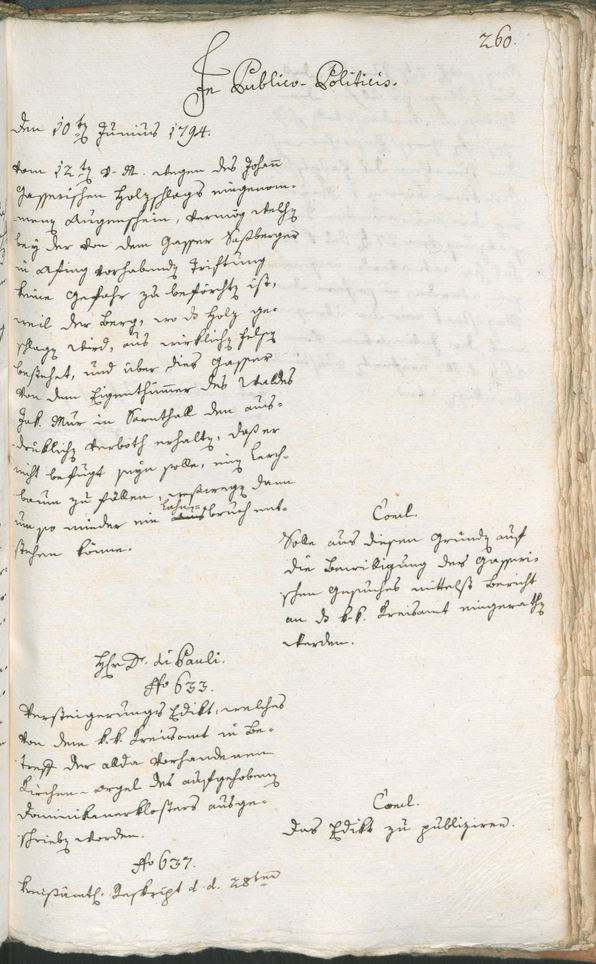 260.
In Publico-Politicis.
den 10t Junius 1794.
Vom 12t d. M. wegen des Johan̄
Gasserischen Holzschlags eingenom-
men Augenschein, vermög welch
bey der von dem Gasser Saßberger
in Afing vorhabend Triftung
keine Gefahr zu beförcht ist,
weil der Berg, wo d Holz ge-
schlag wird, aus wirklich Felsen
bestehet, und über dies Gasser
von dem Eigenthümer des Waldes
Jak. Mur in Sarnthall den aus-
drüklich Verboth erhalt, daß er
nicht befugt seyn solle, ein Lerch-
baum zu fällen, weßweg dann
um so minder ein Lahn- bruch ent-
stehen könne.
Concl.
Solle aus diesen Gründ auf
die Bewilligung des Gasseri-
schen Gesuches mittelst Bericht
an d k.k. Kreisamt eingerath
werden.
Hr Dr. di Pauli.
No 633.
Versteigerungs Edikt, welches
von dem k.k. Kreisamt in Be-
treff der allda vorhandenen
Kirchen-orgel des aufgehobenen
Dominikanerklosters ausge-
schrieb worden.
Concl.
Das Edikt zu publiziren.
No 637.
Kreisämtl. Reskript d. d. 28ten